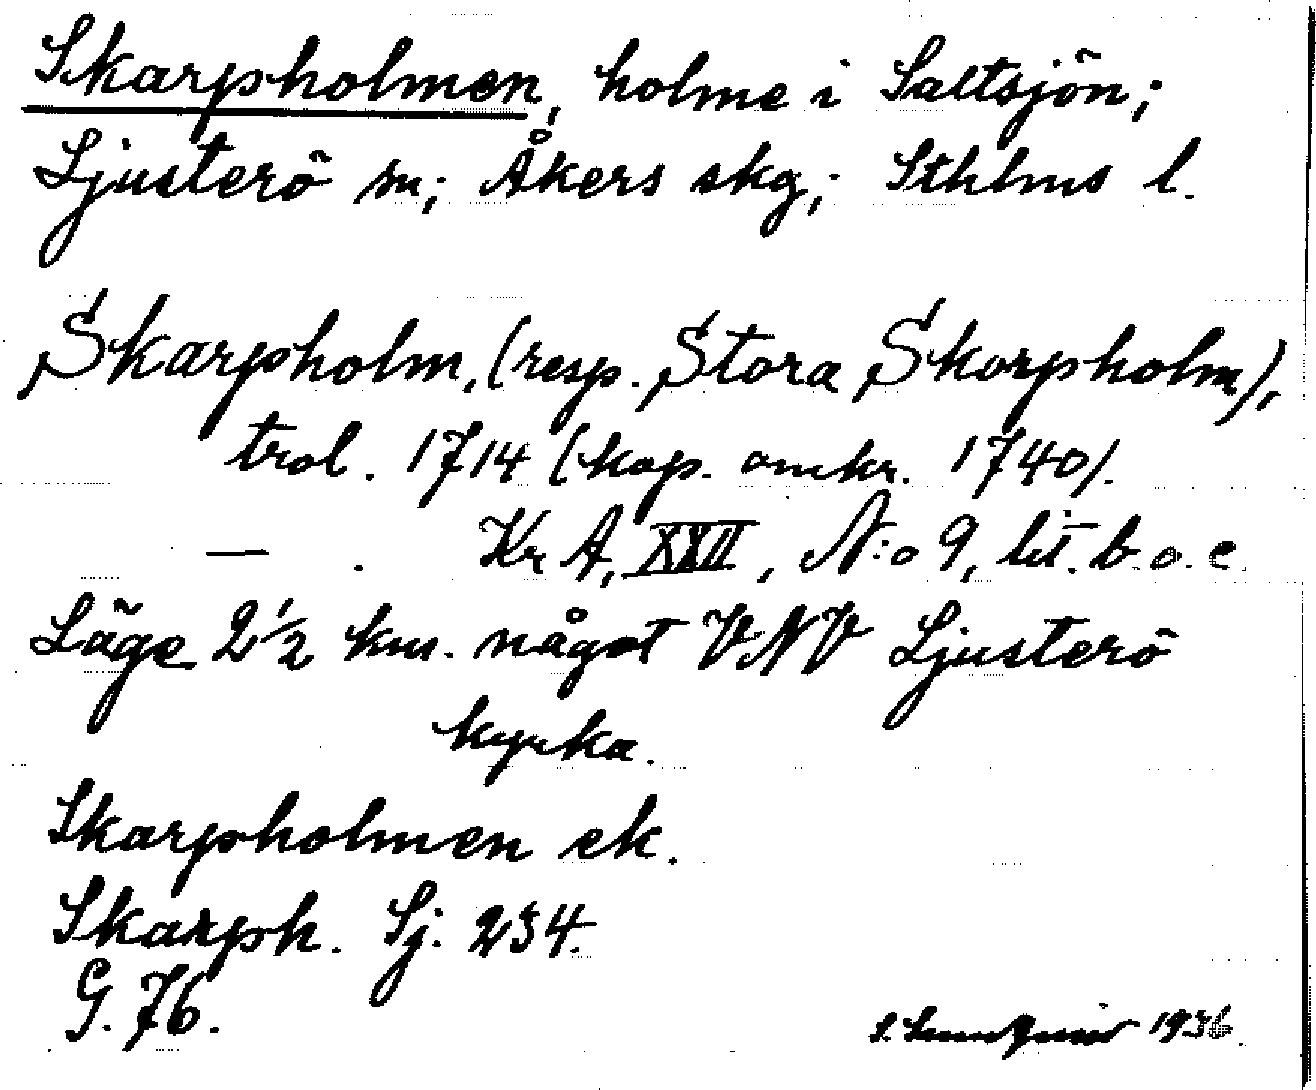 Skarpholmen, holme i Saltsjön;
Ljusterö sn; Åkers skg; Sthlms l.
Skarpholm, (resp. Stora Skorpholm),
trol. 1714 (kop. omkr. 1740).
— . Kr A, XXII, N:o 9, lit. b. o. c
Läge 2 1/2 km. något VNV Ljusterö
kyrka.
Skarpholmen ek.
Skarph. Sj. 234.
G. 76.
S. Sundquist 1936